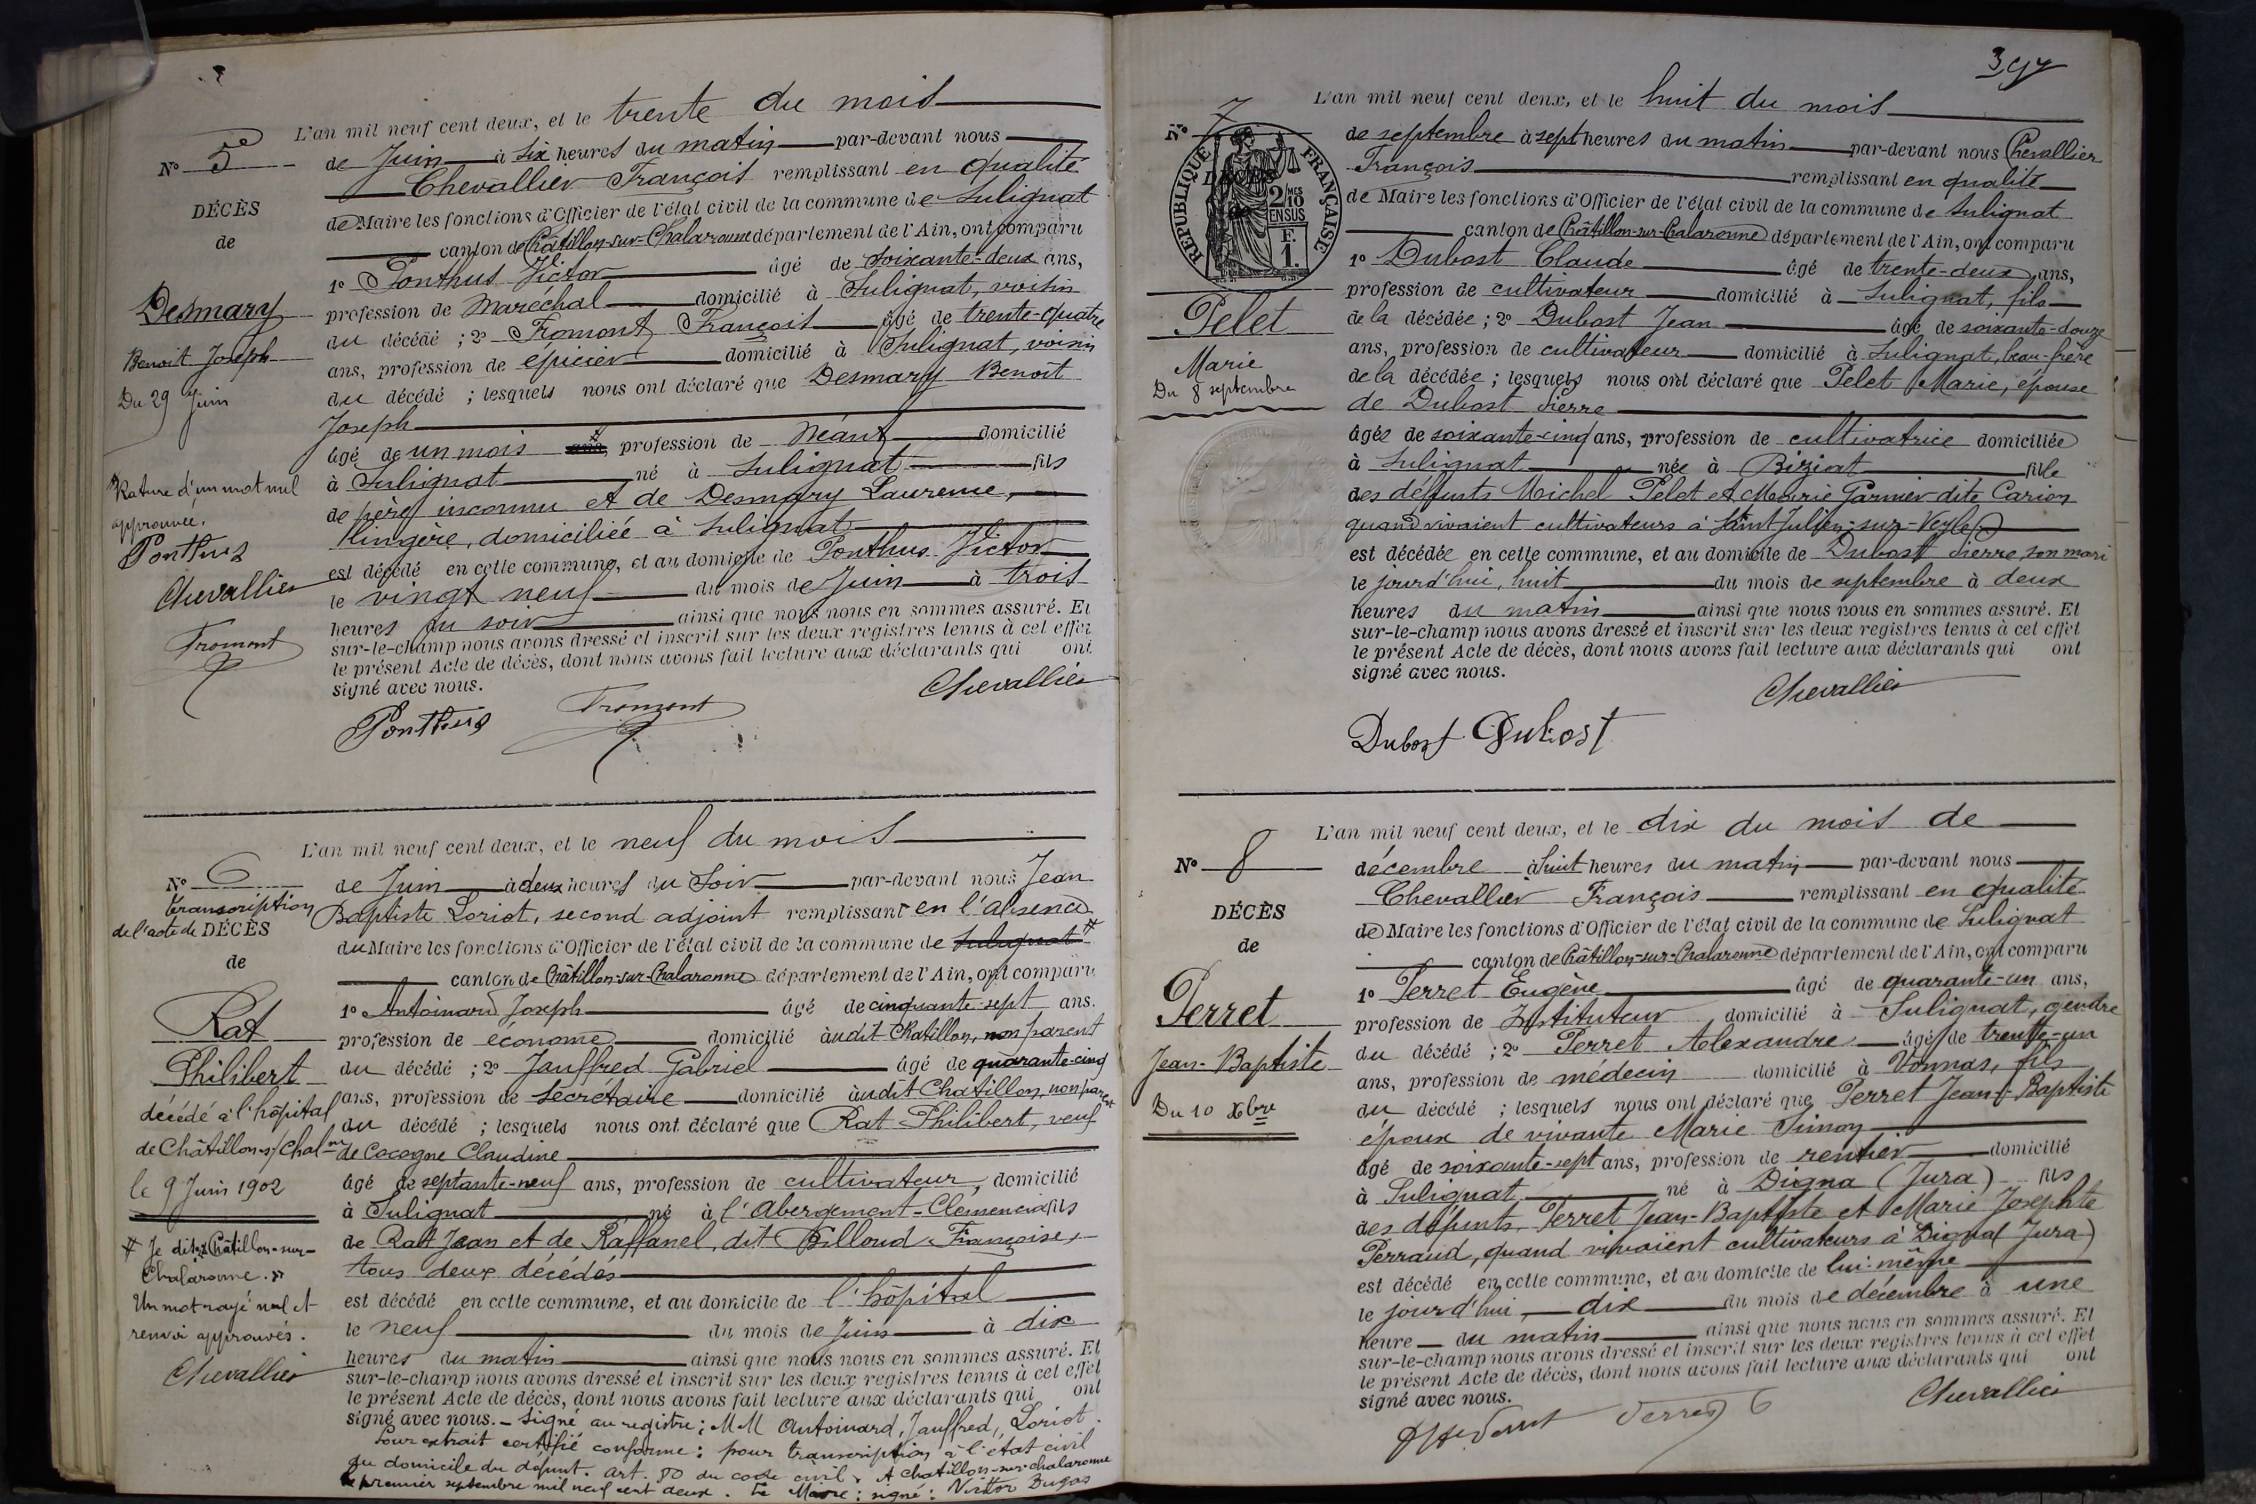 N° 5e
DÉCÈS
de
Desmary
Benoit Joseph
Du 29 Juin
Rature d'un mot nul
approuvée.
Ponthus
Chevallier
Fromont
L'an mil neuf cent deux, et le trente du mois
de Juin à six heures du matin par-devant nous
Chevallier François remplissant en qualité
de Maire les fonctions d'Officier de l'état civil de la commune de Sulignat
canton de Châtillon-sur-Chalaronne département de l'Ain, ont comparu
1° Ponthus Victor âgé de soixante-deux ans,
profession de Maréchal domicilié à Sulignat, voisin
du décédé ; 2° Fromont François âgé de trente-quatre
ans, profession de épicier domicilié à Sulignat, voisin
du décédé ; lesquels nous ont déclaré que Desmary Benoît
Joseph
âgé de un mois ans, profession de Néant domicilié
à Sulignat né à Sulignat fils
de père inconnu et de Desmary Laurence,
lingère, domiciliée à Sulignat
est décédé en cette commune, et au domicile de Ponthus Victor
le vingt neuf du mois de Juin à trois
heures du soir ainsi que nous nous en sommes assuré. Et
sur-le-champ nous avons dressé et inscrit sur les deux registres tenus à cet effet
le présent Acte de décès, dont nous avons fait lecture aux déclarants qui ont
signé avec nous.
Ponthus Fromont Chevallier
N° 6
transcription
de l'acte de DÉCÈS
de
Rat
Philibert
décédé à l'hôpital
de Châtillon-s/Chalne
le 9 Juin 1902
# Je dis : Châtillon-sur-
Chalaronne.
Un mot rayé nul et
renvoi approuvés.
Chevallier
L'an mil neuf cent deux, et le neuf du mois
de Juin à deux heures du Soir par-devant nous Jean
Baptiste Loriot, second adjoint remplissant en l'absence
du Maire les fonctions d'Officier de l'état civil de la commune de Sulignat #
canton de Châtillon-sur-Chalaronne département de l'Ain, ont comparu
1° Antoinard Joseph âgé de cinquante-sept ans.
profession de économe domicilié audit Chatillon, non parent
du décédé ; 2° Jauffred Gabriel âgé de quarante-cinq
ans, profession de Secrétaire domicilié audit Chatillon, non parent
du décédé ; lesquels nous ont déclaré que Rat Philibert, veuf
de Cocogne Claudine
âgé de septante-neuf ans, profession de cultivateur, domicilié
à Sulignat né à l'Abergement-Clémenciat fils
de Rat Jean et de Raffanel, dit Billoud Françoise,
tous deux décédés
est décédé en cette commune, et au domicile de l'hôpital
le neuf du mois de Juin à dix
heures du matin ainsi que nous nous en sommes assuré. Et
sur-le-champ nous avons dressé et inscrit sur les deux registres tenus à cet effet
le présent Acte de décès, dont nous avons fait lecture aux déclarants qui ont
signé avec nous. - Signé au registre : MM Antoinard, Jauffred, Loriot.
Pour extrait certifié conforme : pour transcription à l'état civil
du domicile du défunt. art. 80 du code civil. A Chatillon-sur-Chalaronne
le premier septembre mil neuf cent deux. Le Maire : signé : Victor Dugas
397
N° 7
RÉPUBLIQUE FRANÇAISE
2/10 MES
EN SUS
F.
1.
DÉCÈS
de
Pelet
Marie
Du 8 septembre
L'an mil neuf cent deux, et le huit du mois
de septembre à sept heures du matin par-devant nous Chevallier
François remplissant en qualité
de Maire les fonctions d'Officier de l'état civil de la commune de Sulignat
canton de Châtillon-sur-Chalaronne département de l'Ain, ont comparu
1° Dubost Claude âgé de trente-deux ans,
profession de cultivateur domicilié à Sulignat, fils
de la décédée ; 2° Dubost Jean âgé de soixante-douze
ans, profession de cultivateur domicilié à Sulignat, beau-frère
de la décédée ; lesquels nous ont déclaré que Pelet Marie, épouse
de Dubost Pierre
âgée de soixante-cinq ans, profession de cultivatrice domiciliée
à Sulignat née à Biziat fille
des défunts Michel Pelet et Marie Garnier dite Carion
quand vivaient cultivateurs à Saint Julien-sur-Veyle
est décédée en cette commune, et au domicile de Dubost Pierre, son mari
le jourd'hui, huit du mois de septembre à deux
heures du matin ainsi que nous nous en sommes assuré. Et
sur-le-champ nous avons dressé et inscrit sur les deux registres tenus à cet effet
le présent Acte de décès, dont nous avons fait lecture aux déclarants qui ont
signé avec nous.
Chevallier
Dubost Dubost
N° 8
DÉCÈS
de
Perret
Jean-Baptiste
Du 10 Xbre
L'an mil neuf cent deux, et le dix du mois de
décembre à huit heures du matin par-devant nous
Chevallier François remplissant en qualité
de Maire les fonctions d'Officier de l'état civil de la commune de Sulignat
canton de Châtillon-sur-Chalaronne département de l'Ain, ont comparu
1° Perret Eugène âgé de quarante-un ans,
profession de Instituteur domicilié à Sulignat, gendre
du décédé ; 2° Perret Alexandre âgé de trente-un
ans, profession de médecin domicilié à Vonnas, fils
du décédé ; lesquels nous ont déclaré que Perret Jean-Baptiste
époux de vivante Marie Simon
âgé de soixante-sept ans, profession de rentier domicilié
à Sulignat né à Digna (Jura) fils
des défunts Perret Jean-Baptiste et Marie Josephte
Perraud, quand vivaient cultivateurs à Digna (Jura)
est décédé en cette commune, et au domicile de lui-même
le jourd'hui, dix du mois de décembre à une
heure du matin ainsi que nous nous en sommes assuré. Et
sur-le-champ nous avons dressé et inscrit sur les deux registres tenus à cet effet
le présent Acte de décès, dont nous avons fait lecture aux déclarants qui ont
signé avec nous.
Perret Chevallier